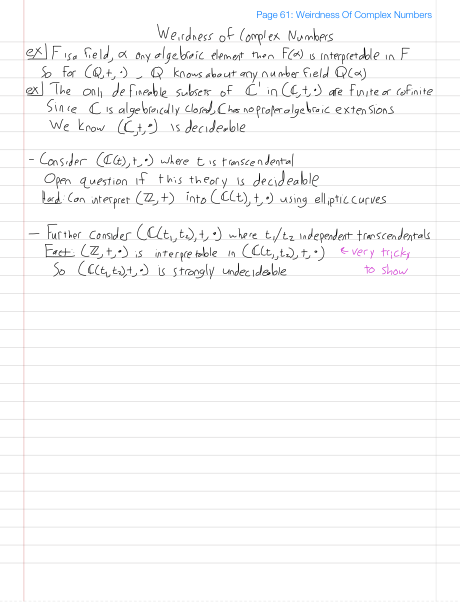 Page 61: Weirdness Of Complex Numbers
Weirdness of Complex Numbers
ex| F is a field, α any algebraic element then F(α) is interpretable in F
So for (Q,+,·), Q knows about any number field Q(α)
ex| The only defineable subsets of ℂ¹ in (ℂ,+,·) are finite or cofinite
Since ℂ is algebraically closed, ℂ has no proper algebraic extensions
We know (ℂ,+,·) is decideable
- Consider (ℂ(t),+,·) where t is transcendental
Open question if this theory is decideable
Hard: Can interpret (ℤ,+) into (ℂ(t),+,·) using elliptic curves
- Further consider (ℂ(t₁,t₂),+,·) where t₁/t₂ independent transcendentals
Fact: (ℤ,+,·) is interpretable in (ℂ(t₁,t₂),+,·) ← very tricky
to show
So (ℂ(t₁,t₂),+,·) is strongly undecideable